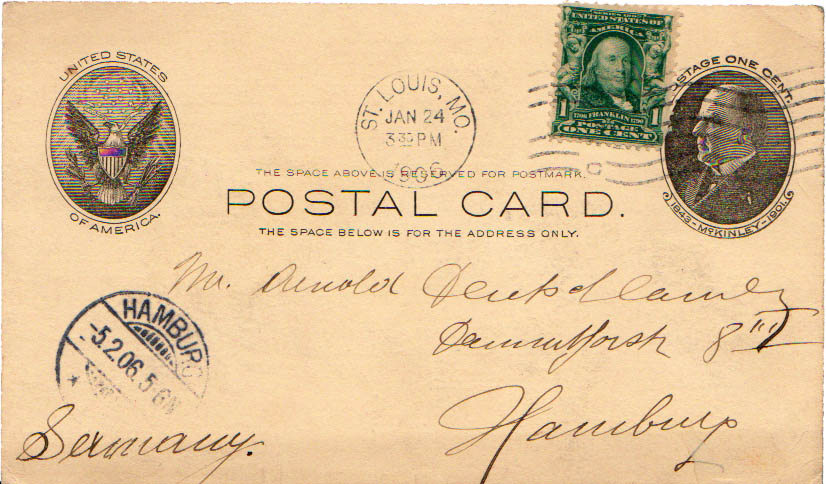 UNITED STATES
OF AMERICA.
ST. LOUIS, MO.
JAN 24
3 30 PM
1906
SERIES 1902
UNITED STATES OF
AMERICA
1 1706 FRANKLIN 1790 1
POSTAGE
ONE CENT
POSTAGE ONE CENT.
1843-McKINLEY-1901.
THE SPACE ABOVE IS RESERVED FOR POSTMARK.
POSTAL CARD.
THE SPACE BELOW IS FOR THE ADDRESS ONLY.
Mr. Arnold
8 III
Hamburg
Germany.
HAMBURG
-5.2.06.5-6N
*